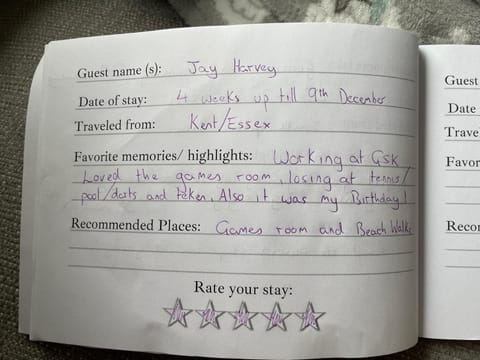 Guest name (s): Jay Harvey
Date of stay: 4 weeks up till 9th December
Traveled from: Kent/Essex
Favorite memories/ highlights: Working at Gsk
Loved the games room, losing at tennis/
pool/darts and teken. Also it was my Birthday!
Recommended Places: Games room and Beach Walks
Rate your stay:
Guest
Date
Trave
Favor
Recon